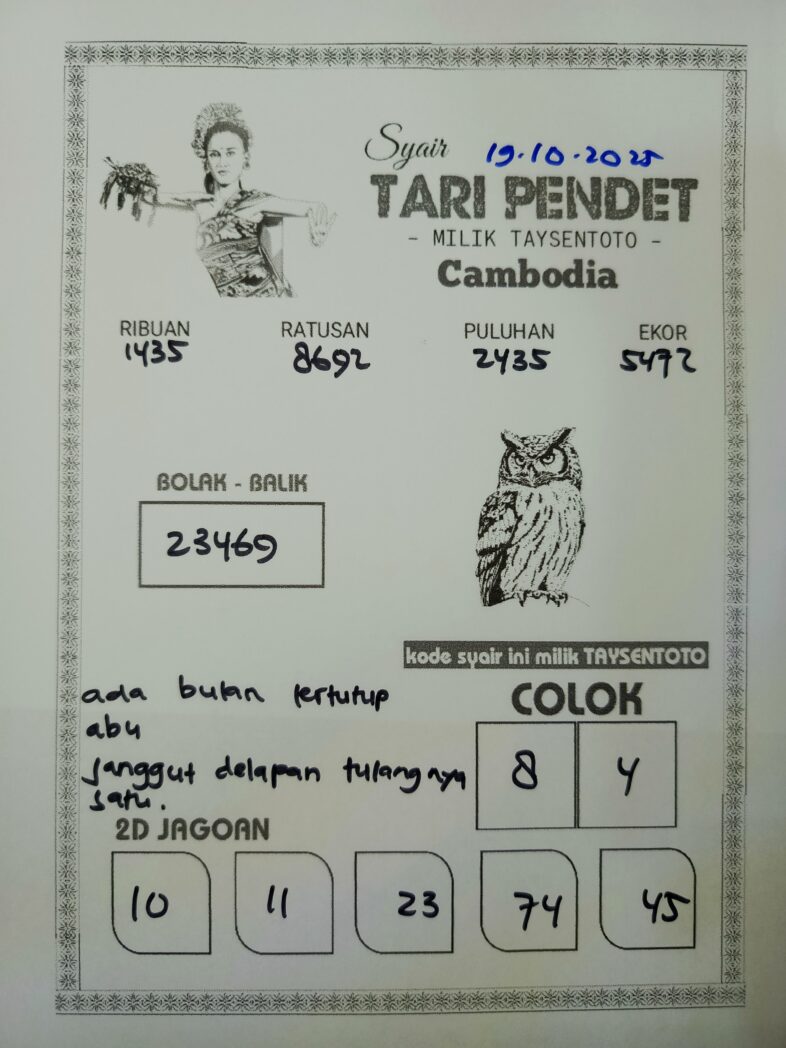 Syair 19.10.2025
TARI PENDET
- MILIK TAYSENTOTO -
Cambodia
RIBUAN RATUSAN PULUHAN EKOR
1435 8692 2435 5472
BOLAK - BALIK
23469
kode syair ini milik TAYSENTOTO
ada bulan tertutup
abu
janggut delapan tulangnya
satu.
COLOK
8 4
2D JAGOAN
10 11 23 74 45